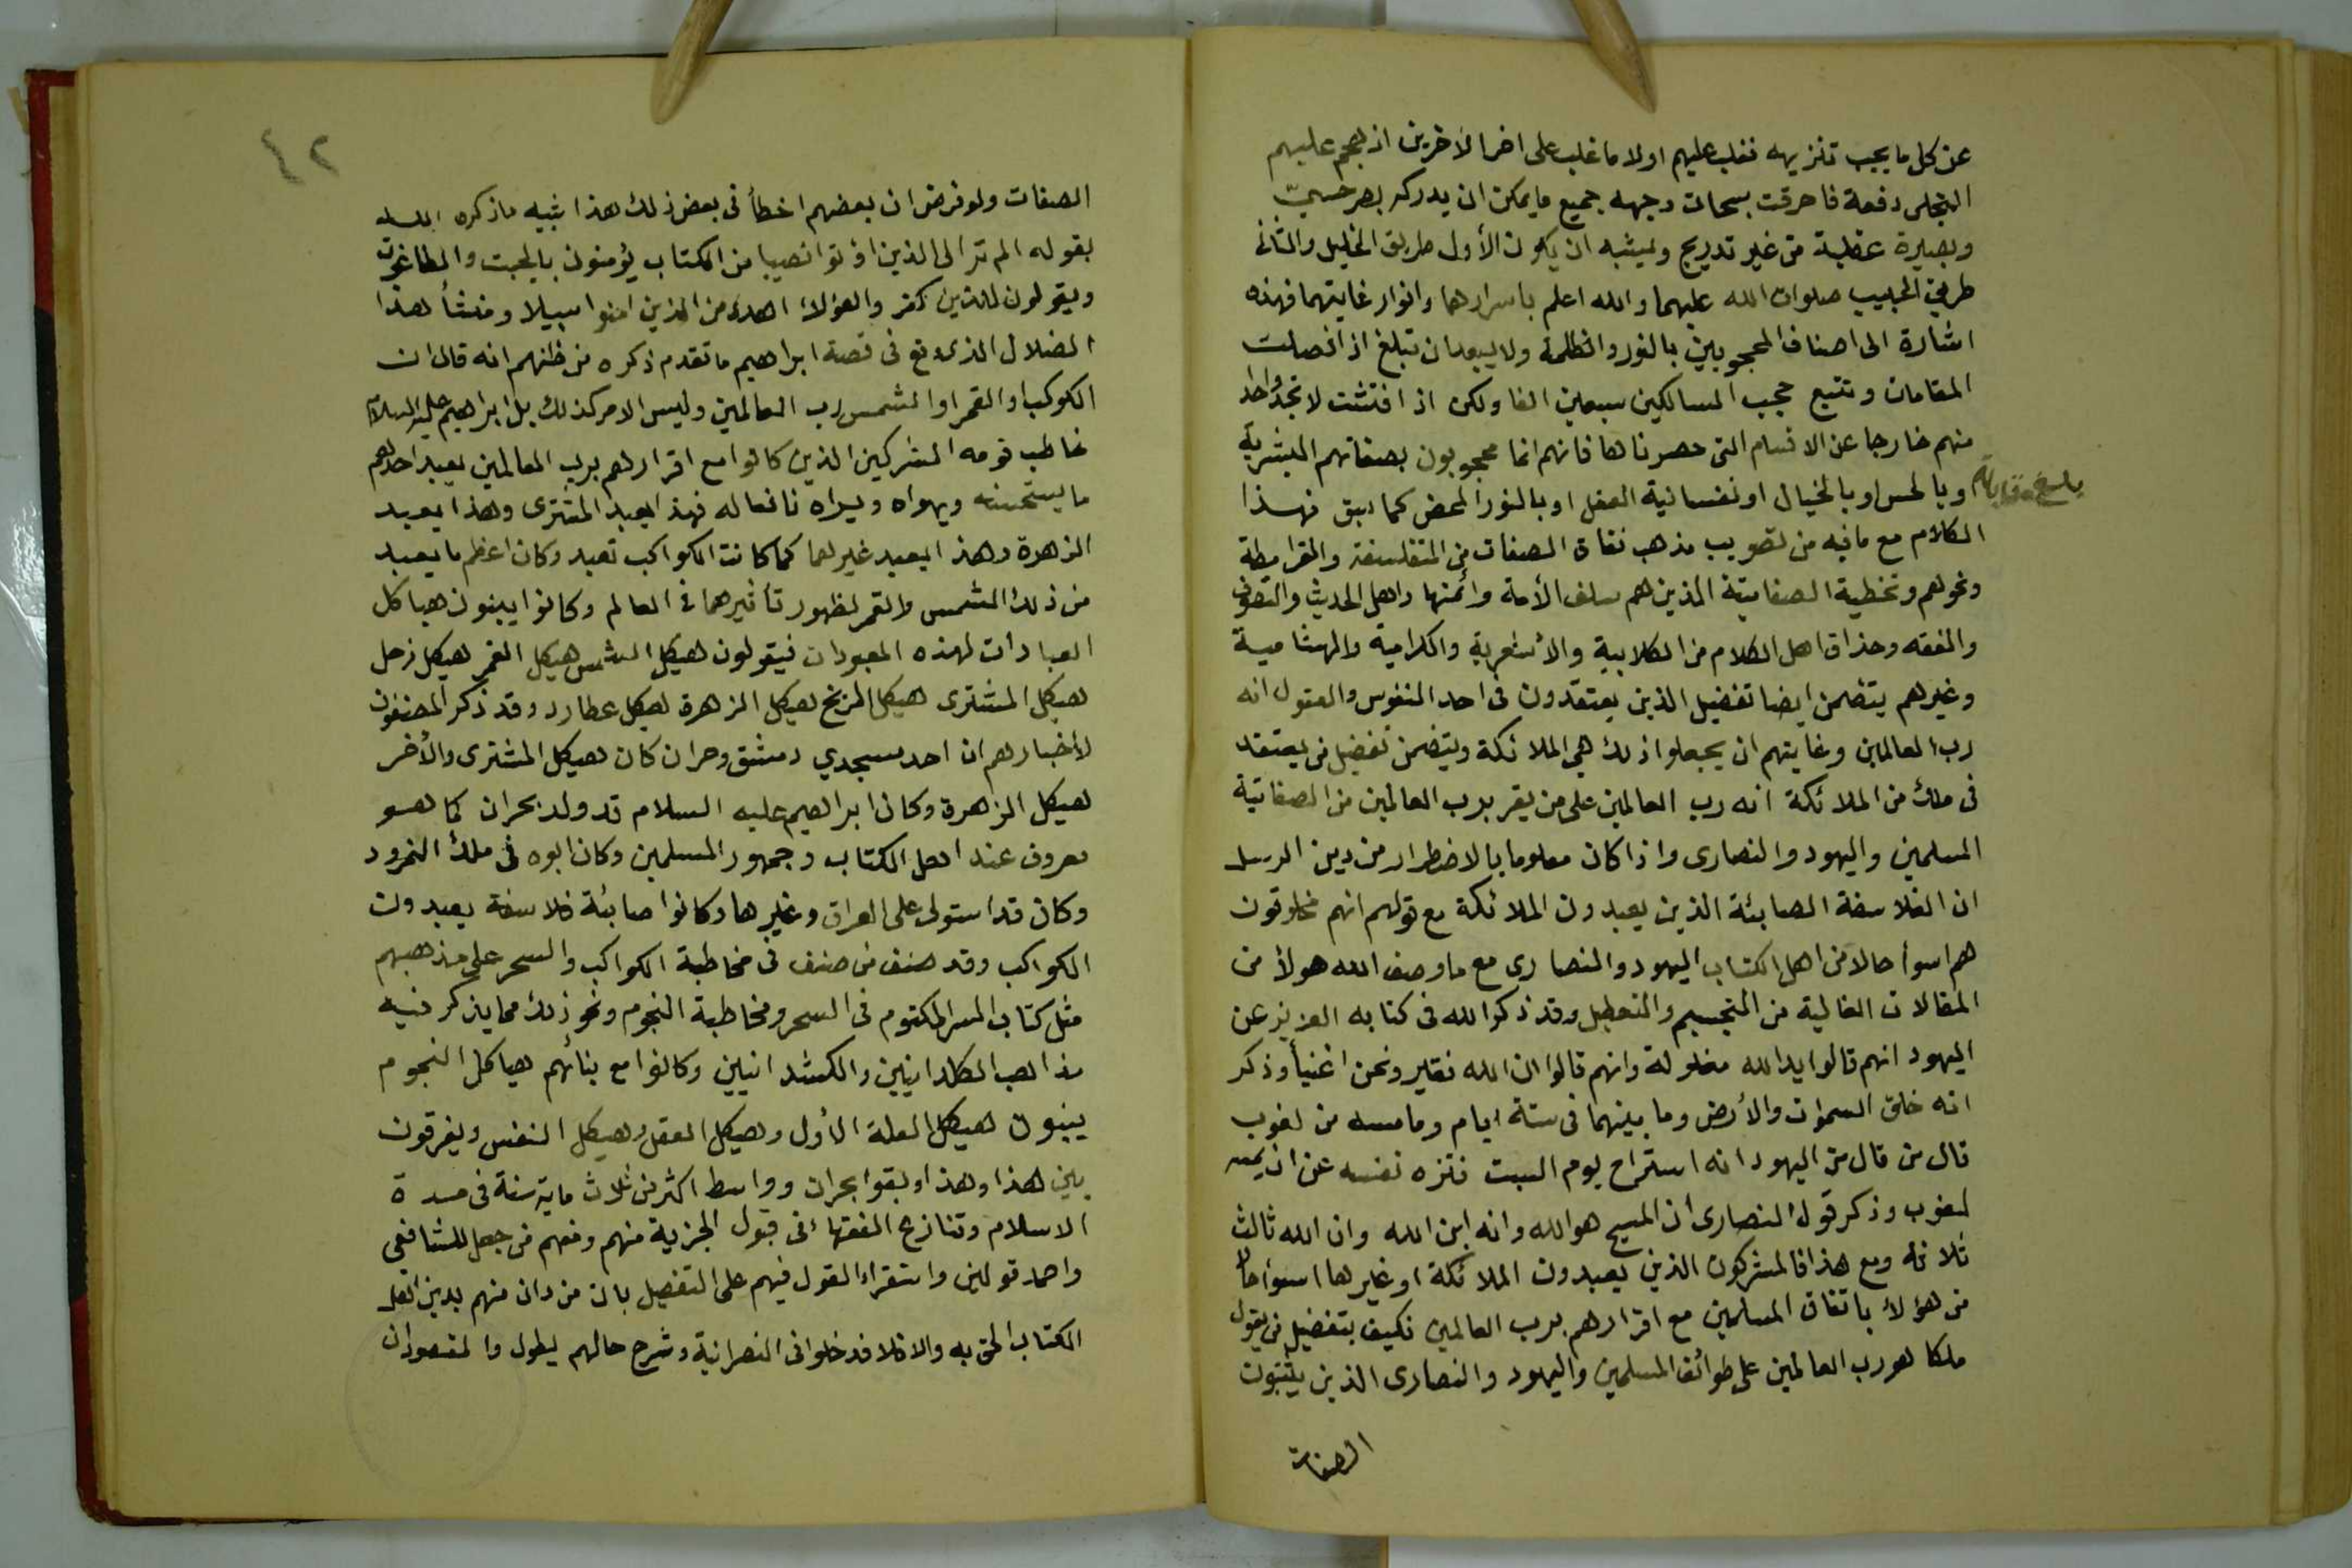 عن كل ما يجب تنزيهه فغلب عليهم اولا ما غلب على اخرا لآخرين اذ هجم عليهم
التجلى دفعة فاحرقت سبحات وجهه جميع ما يمكن ان يدركه بصر حسيّ
وبصيرة عقلية من غير تدريج ويشبه ان يكون الأول طريق الخليل والثانى
طريق الحبيب صلوات الله عليهما والله اعلم باسرارهما وانوار غايتهما فهذه
اشارة الى اصناف المحجوبين بالنور والظلمة ولا يبعد ان تبلغ اذا فصلت
المقامات وتتبع حجب السالكين سبعين الفا ولكن اذ افتشت لا تجد واحدا
منهم خارجا عن الاقسام التى حصرناها فانهم انما محجوبون بصفاتهم البشرية
وبالحس او بالخيال او نفسانية العقل او بالنور المحض كما سبق فهذا
بلغ مقابلة
الكلام مع ما فيه من تصويب مذهب نفاة الصفات من المتفلسفة والقرامطة
ونحوهم وتخطية الصفاتية الذين هم سلف الأمة وائمتها واهل الحديث والتصوف
والفقه وحذاق اهل الكلام من الكلابية والأشعرية والكرامية والهشامية
وغيرهم يتضمن ايضا تفضيل الذين يعتقدون فى احد النفوس والعقول انه
رب العالمين وغايتهم ان يجعلوا ذلك هي الملائكة ويتضمن تفضيل من يعتقد
فى ملك من الملائكة انه رب العالمين على من يقر برب العالمين من الصفاتية
المسلمين واليهود والنصارى واذا كان معلوما بالاضطرار من دين الرسل
ان الفلاسفة الصابئة الذين يعبدون الملائكة مع قولهم انهم مخلوقون
هم اسوأ حالا من اهل الكتاب اليهود والنصارى مع ما وصف الله هولاء من
المقالات الغالية من التجسيم والتعطيل وقد ذكر الله فى كتابه العزيز عن
اليهود انهم قالوا يد الله مغلولة وانهم قالوا ان الله فقير ونحن اغنيأ وذكر
انه خلق السموات والأرض وما بينهما فى ستة ايام وما مسه من لغوب
قال من قال من اليهود انه استراح يوم السبت فنزه نفسه عن ان يمسه
لغوب وذكر قول النصارى ان المسيح هو الله وانه ابن الله وان الله ثالث
ثلاثة ومع هذا فالمشركون الذين يعبدون الملائكة او غيرها اسوأ حالا
من هؤلاء باتفاق المسلمين مع اقرارهم برب العالمين فكيف بتفضيل من يقول
ملكا هو رب العالمين على طوائف المسلمين واليهود والنصارى الذين يثبتون
الصفات
٤٢
الصفات ولو فرض ان بعضهم اخطأ فى بعض ذلك هذا شبيه ما ذكره الله
بقوله الم تر الى الذين اوتوا نصيبا من الكتاب يؤمنون بالجبت والطاغوت
ويقولون للذين كفروا هؤلاء اهدى من الذين امنوا سبيلا ومنشأ هذا
الضلال الذى وقع فى قصة ابراهيم ما تقدم ذكره من ظنهم انه قال ان
الكوكب او القمر او الشمس رب العالمين وليس الامر كذلك بل ابراهيم عليه السلام
خاطب قومه المشركين الذين كانوا مع اقرارهم برب العالمين يعبد احدهم
ما يستحسنه ويهواه ويراه نافعا له فهذا يعبد المشترى وهذا يعبد
الزهرة وهذا يعبد غيرهما كما كانت الكواكب تعبد وكان اعظم ما يعبد
من ذلك الشمس والقمر لظهور تأثيرهما فى العالم وكانوا يبنون هياكل
العبادات لهذه المعبودات فيقولون هيكل الشمس هيكل القمر هيكل زحل
هيكل المشترى هيكل المريخ هيكل الزهرة هيكل عطارد وقد ذكر المصنفون
لأخبارهم ان احد مسجدي دمشق وحران كان هيكل المشترى والأخر
هيكل الزهرة وكان ابراهيم عليه السلام قد ولد بحران كما هو
معروف عند اهل الكتاب وجمهور المسلمين وكان ابوه فى ملك النمرود
وكان قد استولى على العراق وغيرها وكانوا صابئة فلاسفة يعبدون
الكواكب وقد صنف من صنف فى مخاطبة الكواكب والسحر على مذهبهم
مثل كتاب السر المكتوم فى السحر ومخاطبة النجوم ونحو ذلك مما يذكر فيه
مذاهب الكلدانيين والكشدانيين وكانوا مع بنائهم هياكل النجوم
يبنون هيكل العلة الأولى وهيكل العقل وهيكل النفس ويفرقون
بين هذا وهذا وبقوا بحران وواسط اكثر من ثلاث ماية سنة فى مدة
الاسلام وتنازع الفقهاء فى قبول الجزية منهم ومنهم من جعل للشافعى
واحمد قولين واستقراء القول فيهم على التفصيل بان من دان منهم بدين اهل
الكتاب الحق به والا فلا فدخلوا فى النصرانية وشرح حالهم يطول والمقصود ان